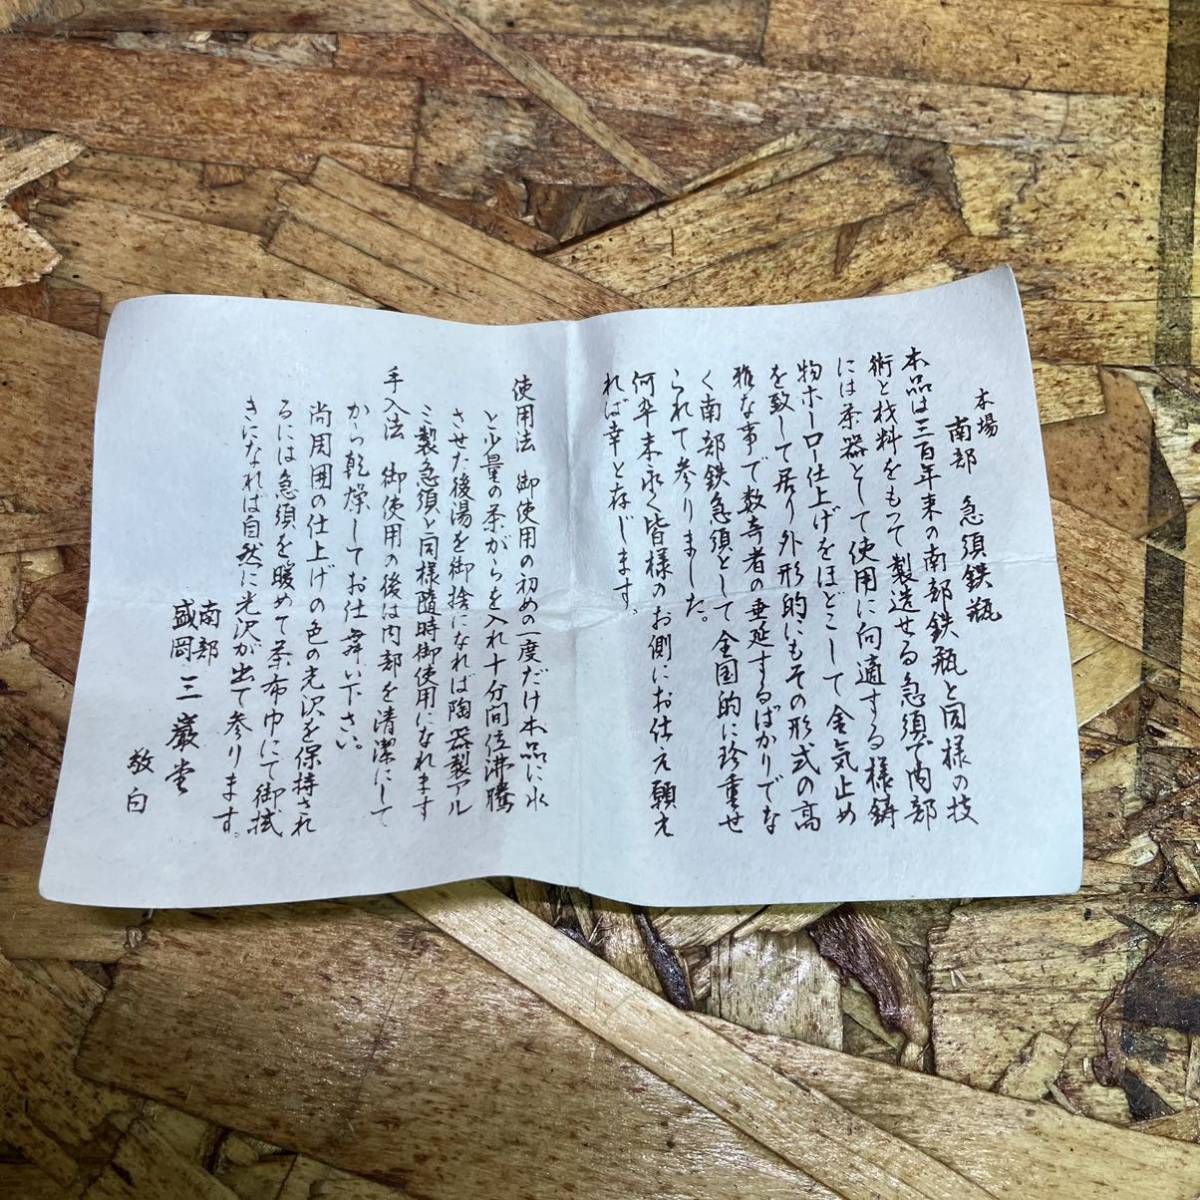 本場
南部 急須鉄瓶
本品は三百年来の南部鉄瓶と同様の技
術と材料をもって製造せる急須で内部
には茶器として使用に向適する様鋳
物ホーロー仕上げをほどこして金気止め
を致して居り外形的にもその形式の高
雅な事で数寄者の垂延するばかりでな
く南部鉄急須として全国的に珍重せ
られて参りました。
何卒末永く皆様のお側にお仕え願え
れば幸と存じます。
使用法 御使用の初めの一度だけ本品に水
と少量の茶がらを入れ十分間位沸騰
させた後湯を御捨になれば陶器製アル
ミ製急須と同様随時御使用になれます
手入法 御使用の後は内部を清潔にして
から乾燥してお仕舞い下さい。
尚周囲の仕上げの色の光沢を保持され
るには急須を暖めて茶布巾にて御拭
きになれば自然に光沢が出て参ります。
南部
盛岡 三巌堂
敬白